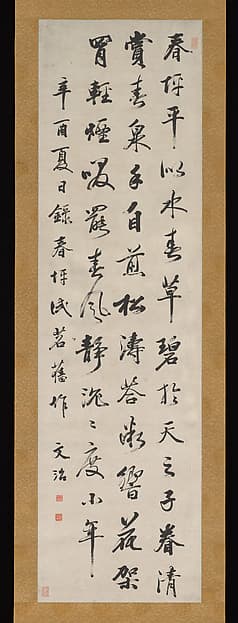 春坪平似水春草碧於天之子眷清
賞春泉手自煎松濤答漱響花架
罥輕煙啜罷春風靜沉沉度小年
辛酉夏日錄春坪試茗舊作 文治